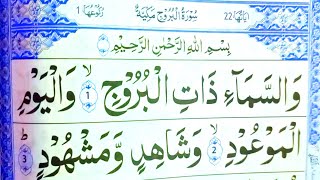 اٰیَاتُهَا 22 سُوْرَةُ الْبُرُوْجِ مَكِّيَّةٌ رُكُوْعُهَا 1
بِسْمِ اللّٰهِ الرَّحْمٰنِ الرَّحِيْمِ
وَالسَّمَآءِ ذَاتِ الْبُرُوْجِ ۙ 1 وَالْيَوْمِ
الْمَوْعُوْدِ ۙ 2 وَشَاهِدٍ وَّمَشْهُوْدٍ ؕ 3